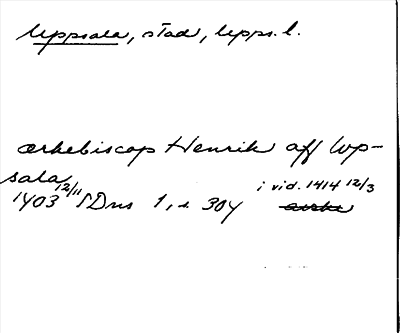 Uppsala, stad, Upps. l.
ærkebiscop Henrik aff Wp-
sala
1403 12/11 SDns 1, s. 304 i vid. 1414 12/3